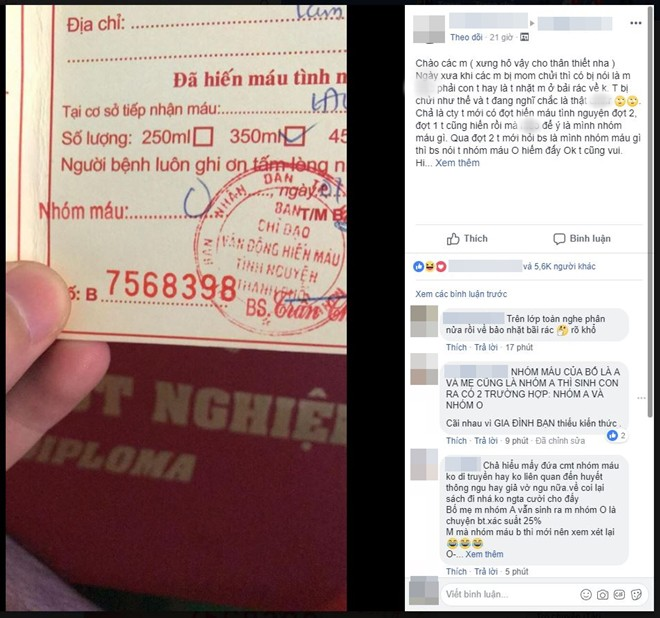 Địa chỉ:
Đã hiến máu tình n
Tại cơ sở tiếp nhận máu:
Số lượng: 250ml 350ml 45
Người bệnh luôn ghi ơn tấm lòng n
, ngày
Nhóm máu: O
T/M B
BAN
CHỈ ĐẠO
VẬN ĐỘNG HIẾN MÁU
TÌNH NGUYỆN
NHÂN DÂN
Số: B 7568398
BS. Trần
T NGHIỆ
DIPLOMA
Theo dõi · 21 giờ ·
Chào các m ( xưng hô vậy cho thân thiết nha )
Ngày xưa khi các m bị mom chửi thì có bị nói là m
phải con t hay là t nhặt m ở bải rác về k. T bị
chửi như thế và t đang nghĩ chắc là thật
Chả là cty t mới có đợt hiến máu tình nguyện đợt 2,
đợt 1 t cũng hiến rồi mà để ý là mình nhóm
máu gì. Qua đợt 2 t mới hỏi bs là mình nhóm máu
gì thì bs nói t nhóm máu O hiếm đấy Ok t cũng vui.
Hi... Xem thêm
Thích Bình luận
và 5,6K người khác
Xem các bình luận trước
Trên lớp toàn nghe phân
nữa rồi về bảo nhặt bãi rác 🤔 rõ khổ
Thích · Trả lời · 17 phút
NHÓM MÁU CỦA BỐ LÀ A
VÀ MẸ CŨNG LÀ NHÓM A THÌ SINH CON
RA CÓ 2 TRƯỜNG HỢP: NHÓM A VÀ
NHÓM O
Cãi nhau vì GIA ĐÌNH BẠN thiếu kiến thức .
2
Thích · Trả lời · 9 phút · Đã chỉnh sửa
Chả hiểu mấy đứa cmt nhóm máu
ko di truyền hay ko liên quan đến huyết
thông ngu hay giả vờ ngu nữa.về coi lại
sách đi nhá.ko ngta cười cho đấy
Bố mẹ m nhóm A vẫn sinh ra m nhóm O là
chuyện bt.xác suất 25%
M mà nhóm máu b thì mới nên xem xét lại
😂😂😂
O-... Xem thêm
Thích · Trả lời · 5 phút
Viết bình luận...